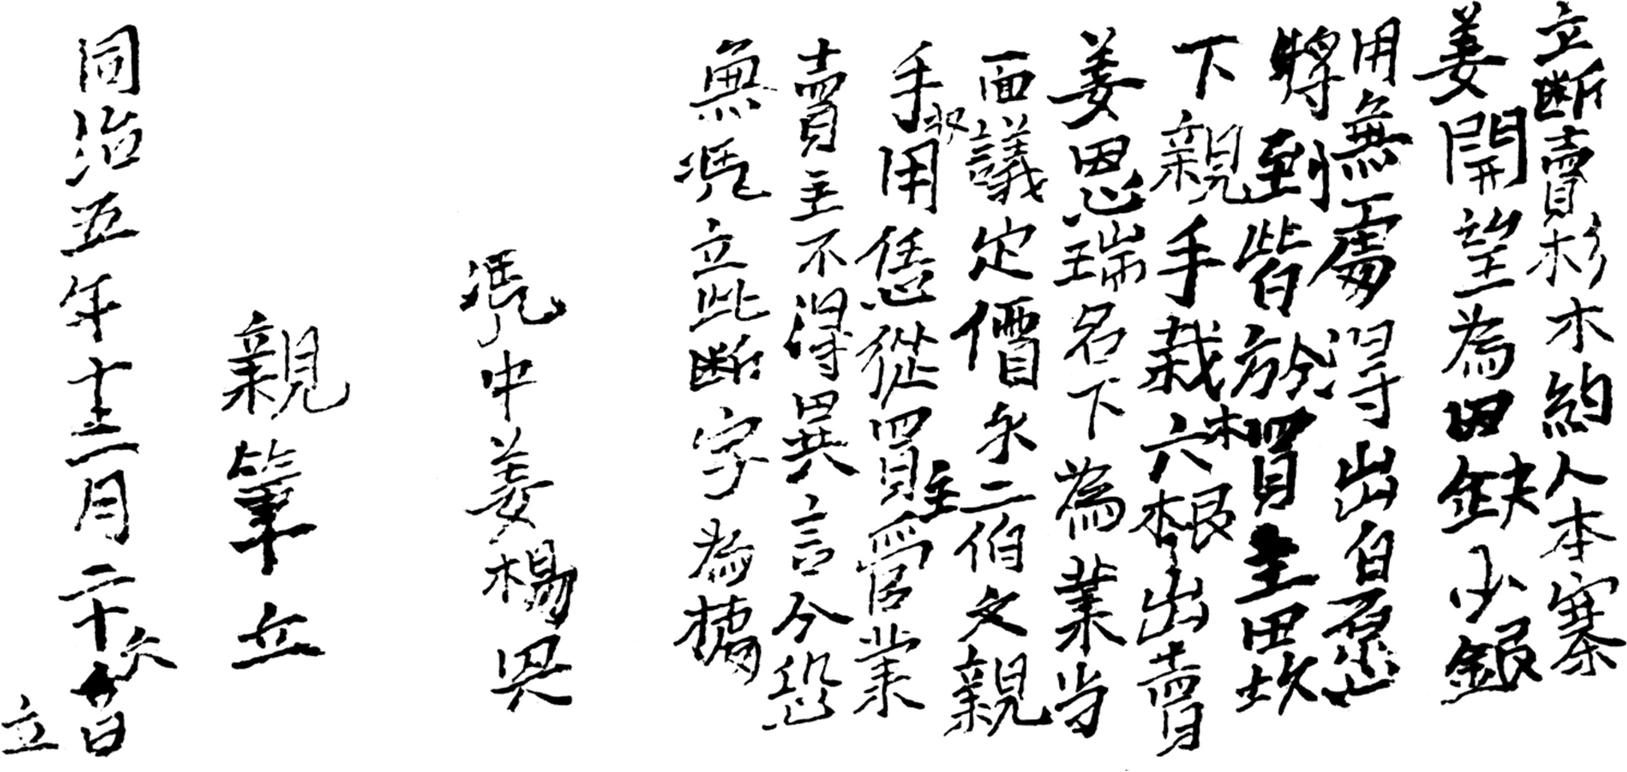 立断賣杉木約人本寨
姜開望為因缺少銀
用無處得出自愿
將到皆於買主田坎
下親手栽六根木出賣
姜恩瑞名下為業当
面議定價禾二伯文親
手收用恁從買主管業
賣主不得異言今恐
無凴立此断字為㯖
凴中姜楊兴
親筆立
同治五年十二月二十六日
立